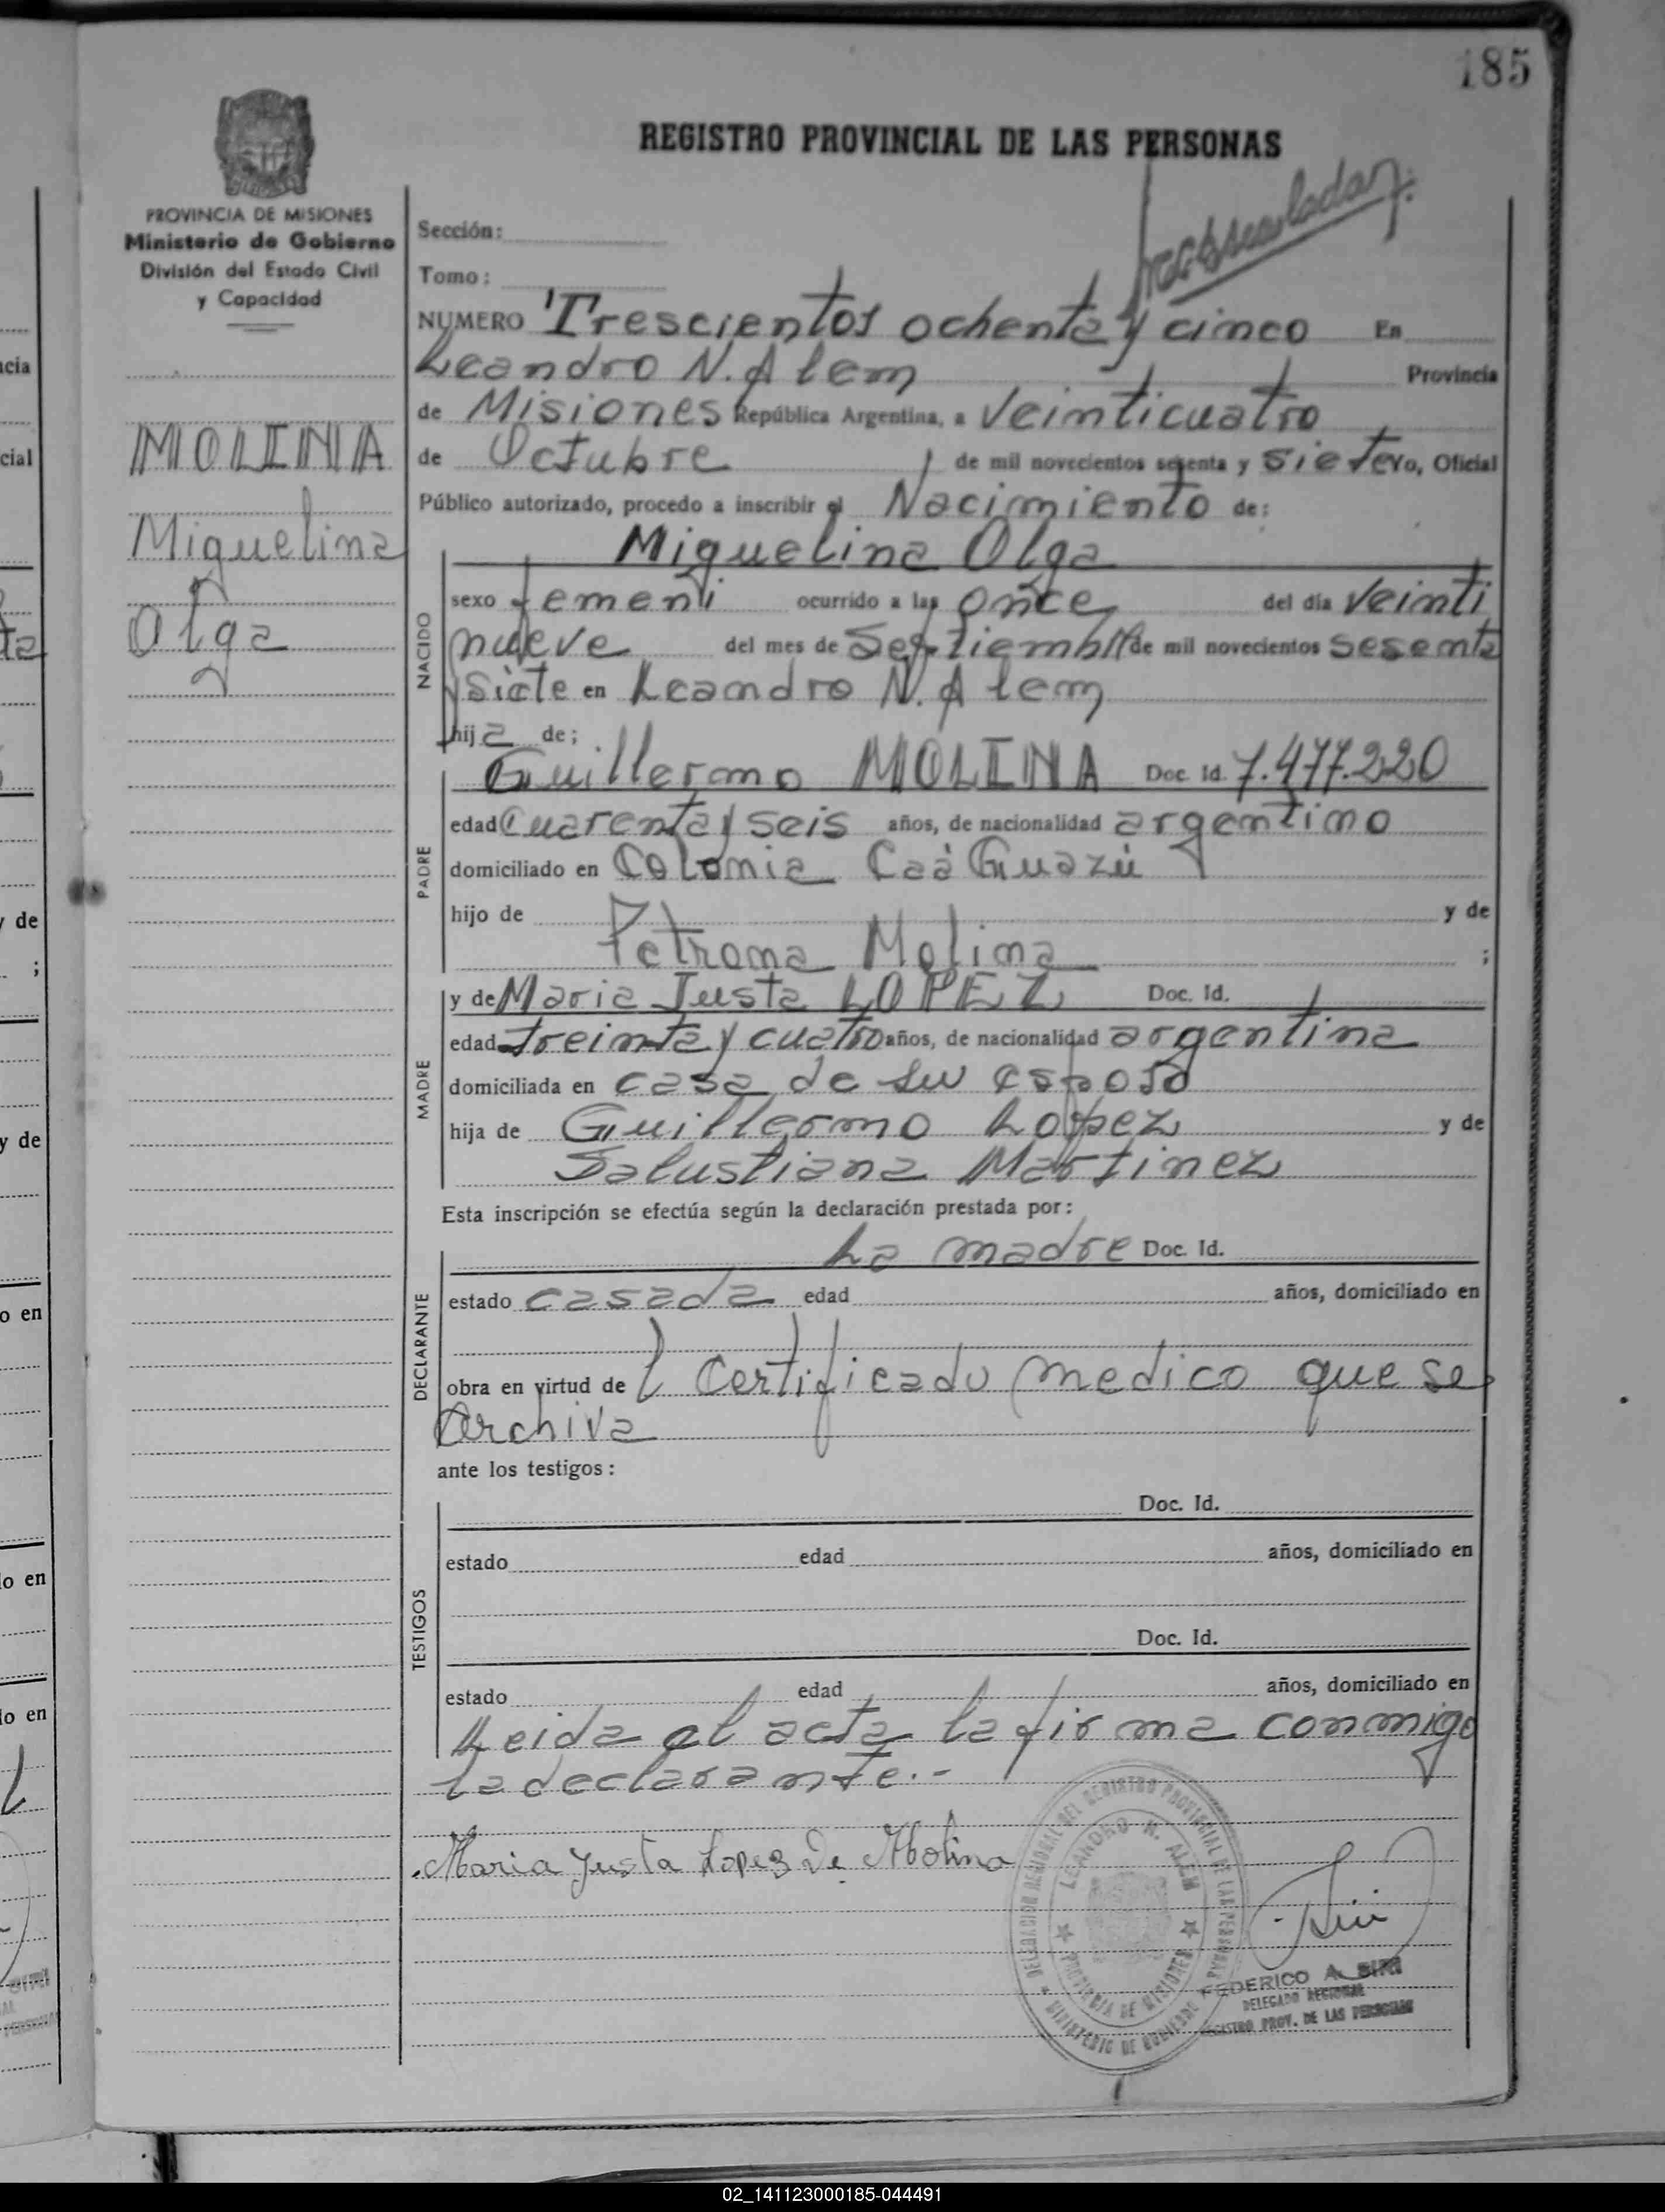 185
REGISTRO PROVINCIAL DE LAS PERSONAS
PROVINCIA DE MISIONES
Ministerio de Gobierno
División del Estado Civil
y Capacidad
MOLINA
Miguelina
Olga
Sección:
Tomo:
NUMERO Trescientos ochenta y cinco En
Leandro N. Alem Provincia
de Misiones República Argentina, a Veinticuatro
de Octubre de mil novecientos sesenta y siete yo, Oficial
Público autorizado, procedo a inscribir el Nacimiento de:
Miguelina Olga
NACIDO
sexo femeni ocurrido a las once del día Veinti
nueve del mes de Septiembre de mil novecientos sesenta
y siete en Leandro N. Alem
hija de;
Guillermo MOLINA Doc. Id. 7.477.220
PADRE
edad Cuarenta y seis años, de nacionalidad argentino
domiciliado en Colonia Caà Guazù
hijo de y de
Petrona Molina ;
MADRE
y de Maria Justa LOPEZ Doc. Id.
edad treinta y cuatro años, de nacionalidad argentina
domiciliada en casa de su esposo
hija de Guillermo Lopez y de
Salustiana Martinez
Esta inscripción se efectúa según la declaración prestada por:
DECLARANTE
La madre Doc. Id.
estado casada edad años, domiciliado en
obra en virtud de l Certificado medico que se
Archiva
ante los testigos:
TESTIGOS
Doc. Id.
estado edad años, domiciliado en
Doc. Id.
estado edad años, domiciliado en
Leida el acta la firma conmigo
la declarante.-
Maria Justa Lopez De Molina
DELEGACION REGIONAL DEL REGISTRO PROVINCIAL DE LAS PERSONAS
LEANDRO N. ALEM
PROVINCIA DE MISIONES
MINISTERIO DE GOBIERNO
FEDERICO A.
DELEGADO REGIONAL
REGISTRO PROV. DE LAS PERSONAS
02_141123000185-044491